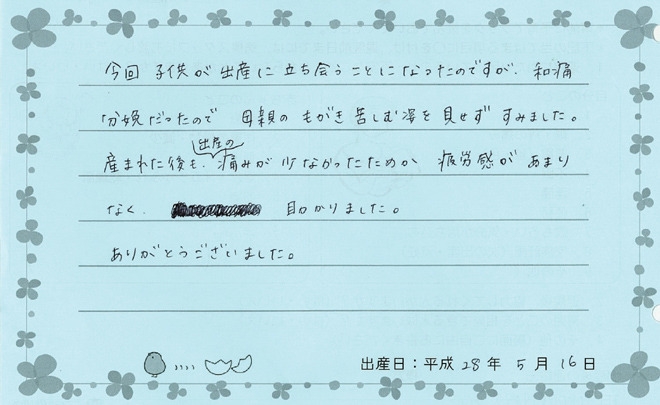 今回 子供が出産に立ち会うことになったのですが、和痛
分娩だったので 母親のもがき苦しむ姿を見せずすみました。
産まれた後も、出産の痛みが少なかったためか 疲労感があまり
なく、 助かりました。
ありがとうございました。
出産日：平成28年 5月 16日